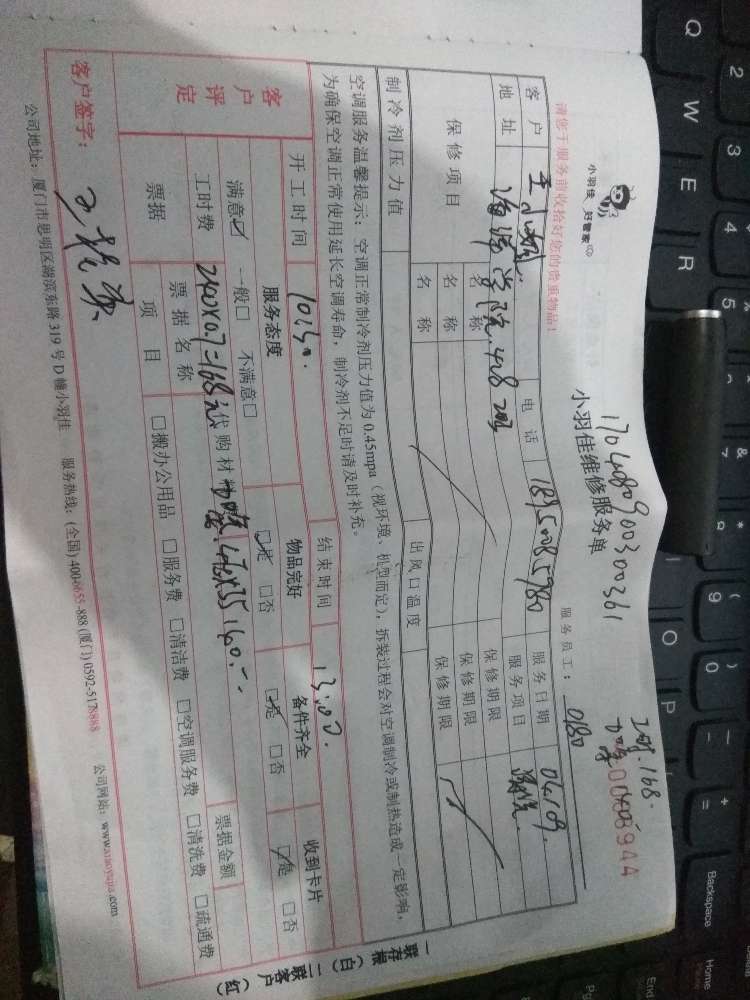 小羽佳 好管家
请您于服务前收拾好您的贵重物品!
170480900300361
小羽佳维修服务单
168.
0008944
服务员工: 0180
客户 电话 18950085980 服务日期 04.09.
地址 海洋学院 428 服务项目
保修项目 名称 保修期限
名称 保修期限
名称 保修期限
制冷剂压力值 出风口温度
空调服务温馨提示:空调正常制冷剂压力值为0.45mpa(视环境、机型而定),拆装过程会对空调制冷或制热造成一定影响,
为确保空调正常使用延长空调寿命,制冷剂不足时请及时补充。
开工时间 10:30. 结束时间 13:00.
客户评定 服务态度 物品完好 备件齐全 收到卡片
满意☑ 一般□ 不满意□ ☑是 □否 ☑是 □否 ☑是 □否
工时费 240X0.7=168元 代购材料
票据 票据名称 票据金额
项目 □搬办公用品 □服务费 □清洁费 □空调服务费 □清洗费 □疏通费
客户签字:
公司地址:厦门市思明区湖滨东路319号D幢小羽佳 服务热线:(全国)400-6655-888 (厦门)0592-5178888 公司网站:www.xiaoyujia.com
一联存根(白) 二联客户(红)
Q W E R O P
2 3 4 5 7 8 9 0
& * ( ) _ - + =
Backspace
Home